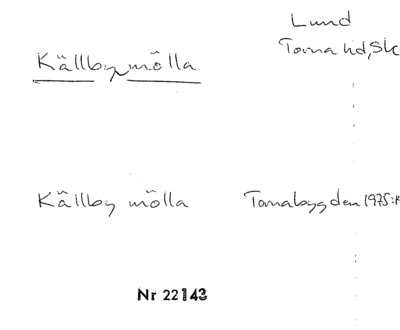 Lund
Torna hd, Sk
Källby mölla
Källby mölla Tornabygden 1975:
Nr 22143